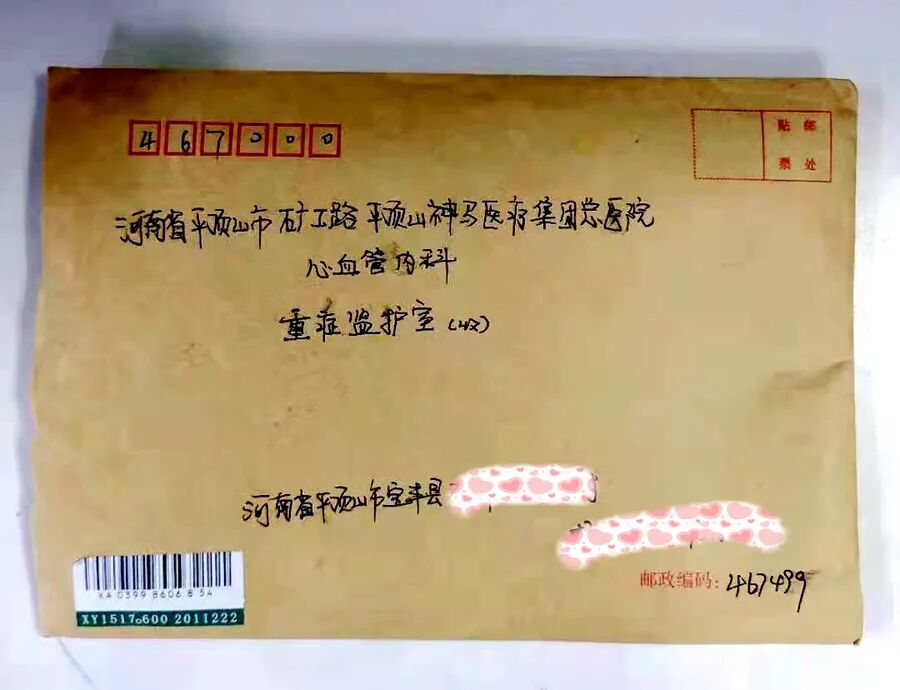 467000
贴邮
票处
河南省平顶山市矿工路平顶山神马医疗集团总医院
心血管内科
重症监护室(4区)
河南省平顶山市宝丰县
邮政编码: 467499
XA 0399 8606 8 54
XY1517o600 2011222